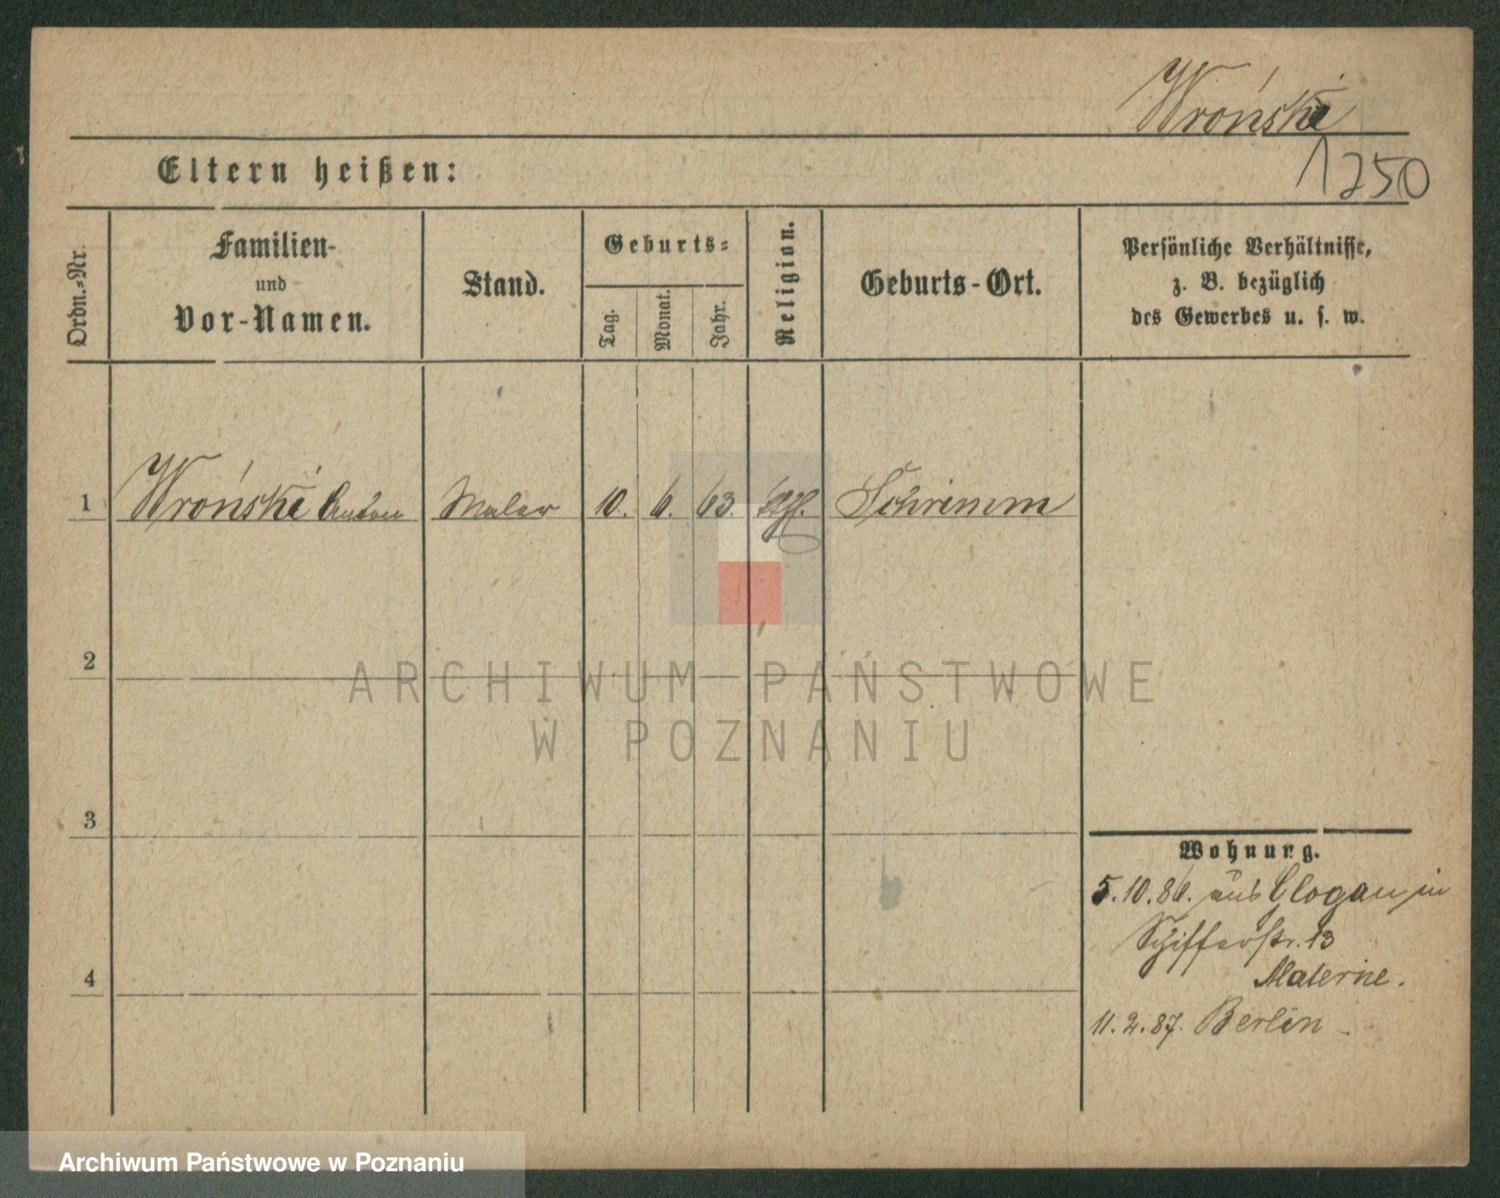 Wroński
Eltern heißen:
1250
Ordn.-Nr.
Familien-
und
Vor-Namen.
Stand.
Geburts-
Tag.
Monat.
Jahr.
Religion.
Geburts-Ort.
Persönliche Verhältnisse,
z. B. bezüglich
des Gewerbes u. s. w.
1 Wroński Anton Maler 10. 6. 63. Schrimm
2
ARCHIWUM PAŃSTWOWE
W POZNANIU
3
Wohnung.
5.10.86. aus Glogau in
Schifferstr. 13
Materne.
4
11.2.87. Berlin
Archiwum Państwowe w Poznaniu